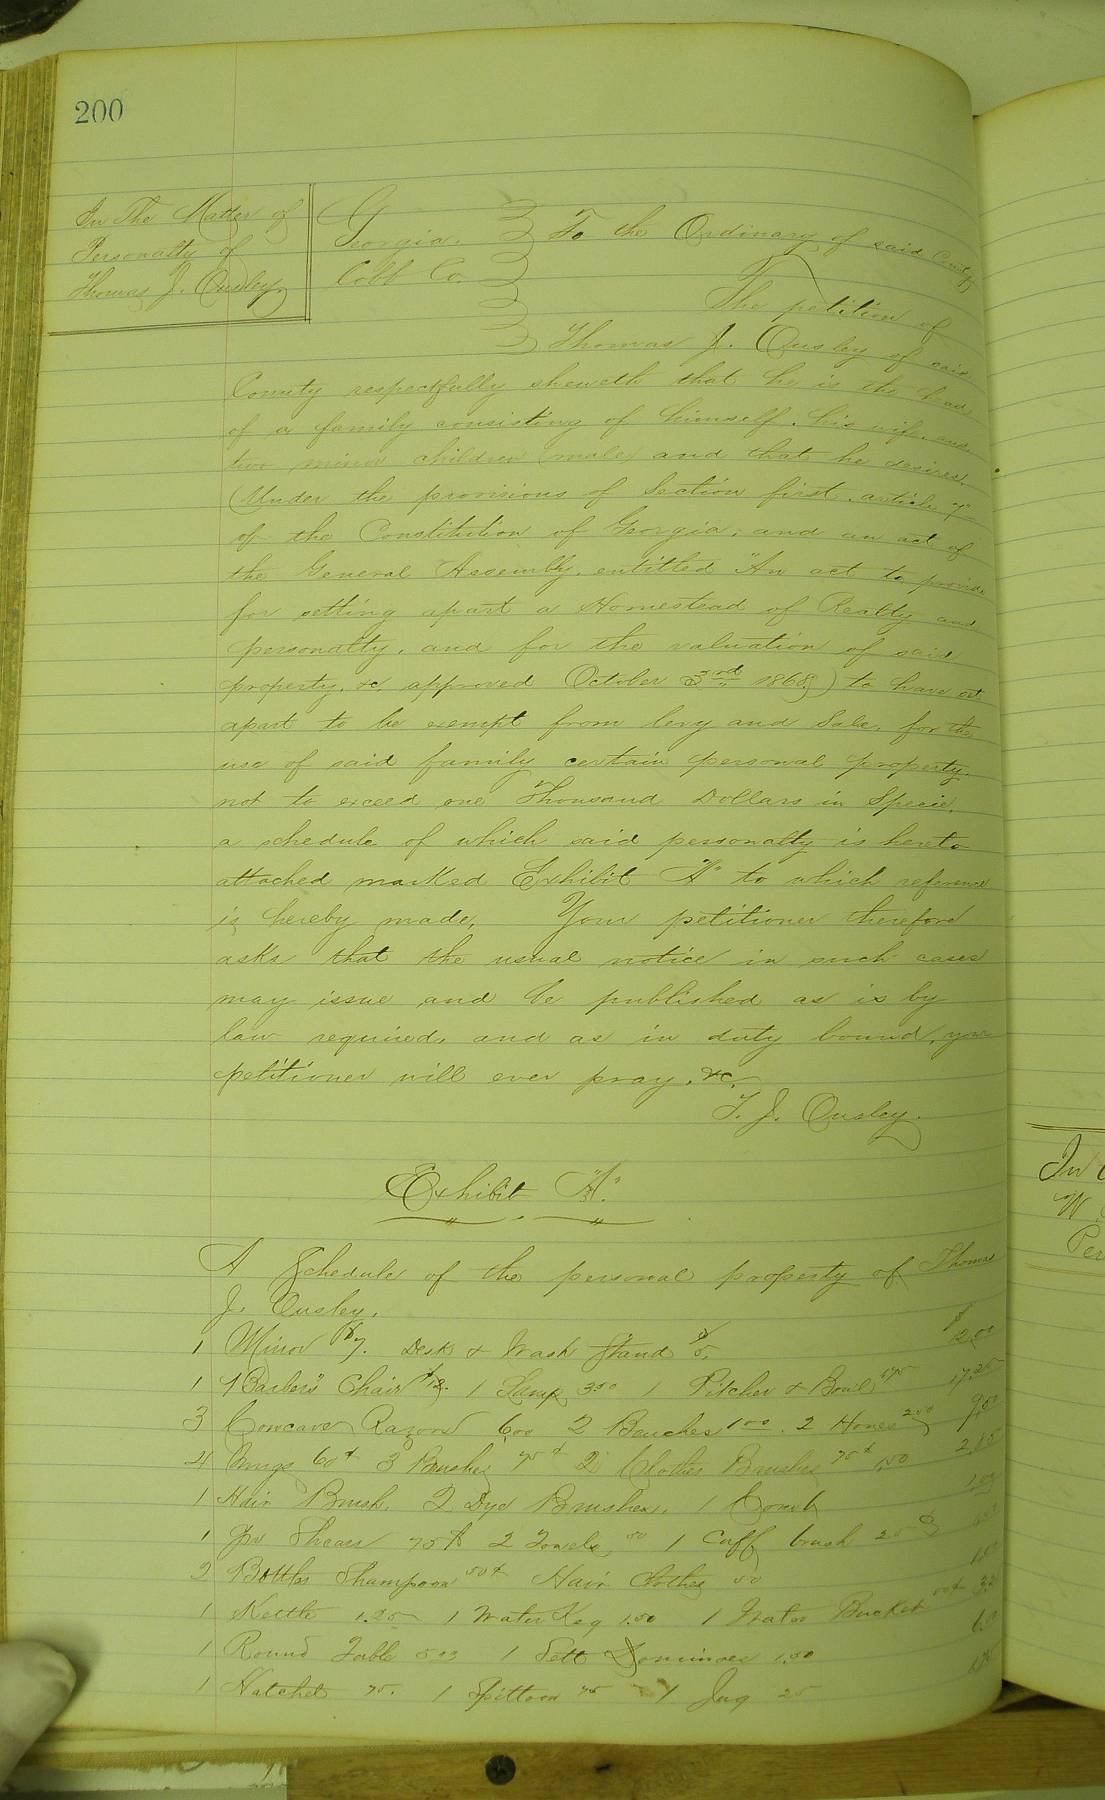 200
In The Matter of
Personalty of
Thomas J. Ousley,
Georgia.
Cobb Co.
To the Ordinary of said County
The petition of
Thomas J. Ousley of said
County respectfully sheweth that he is the head
of a family consisting of himself, his wife and
two minor children (male) and that he desires,
(Under the provisions of Section first, article 7"
of the Constitution of Georgia, and an act of
the General Assembly, entitled "An act to provide
for setting apart a Homestead of Realty and
personalty, and for the valuation of said
property, &c, approved October 3rd 1868,) to have set
apart to be exempt from levy and Sale, for the
use of said family certain personal property,
not to exceed one Thousand Dollars in Specie,
a schedule of which said personalty is hereto
attached marked Exhibit "A" to which reference
is hereby made, Your petitioner therefore
asks that the usual notice in such cases
may issue and be published as is by
law required, and as in duty bound, your
petitioner will ever pray, &c.
T. J. Ousley.
Exhibit "A."
A Schedule of the personal property of Thomas
J. Ousley.
1 Mirror $7. Desk & Wash Stand $5. 12.00
1 Barbers Chair $12. 1 Lamp 3.50 1 Pitcher & Bowl 1.75 17.25
3 Concave Razors 6.00 2 Benches 1.00. 2 Hones 2.00 9.00
4 Mugs 60¢ 3 Brushes 75¢ 2 Clothes Brushes 75¢ 1.50 2.85
1 Hair Brush, 2 Dye Brushes, 1 Comb
1 pr Shears 75¢ 2 Towels 50 1 Cuff brush 25¢
2 Bottles Shampoon 50¢ Hair Clothes 50
1 Kettle 1.25 1 Water Keg 1.50 1 Water Bucket 50¢
1 Round Table 5.00 1 Sett Dominoes 1.50
1 Hatchet 75. 1 Spittoon 75 1 Jug 25
In
W.
Per